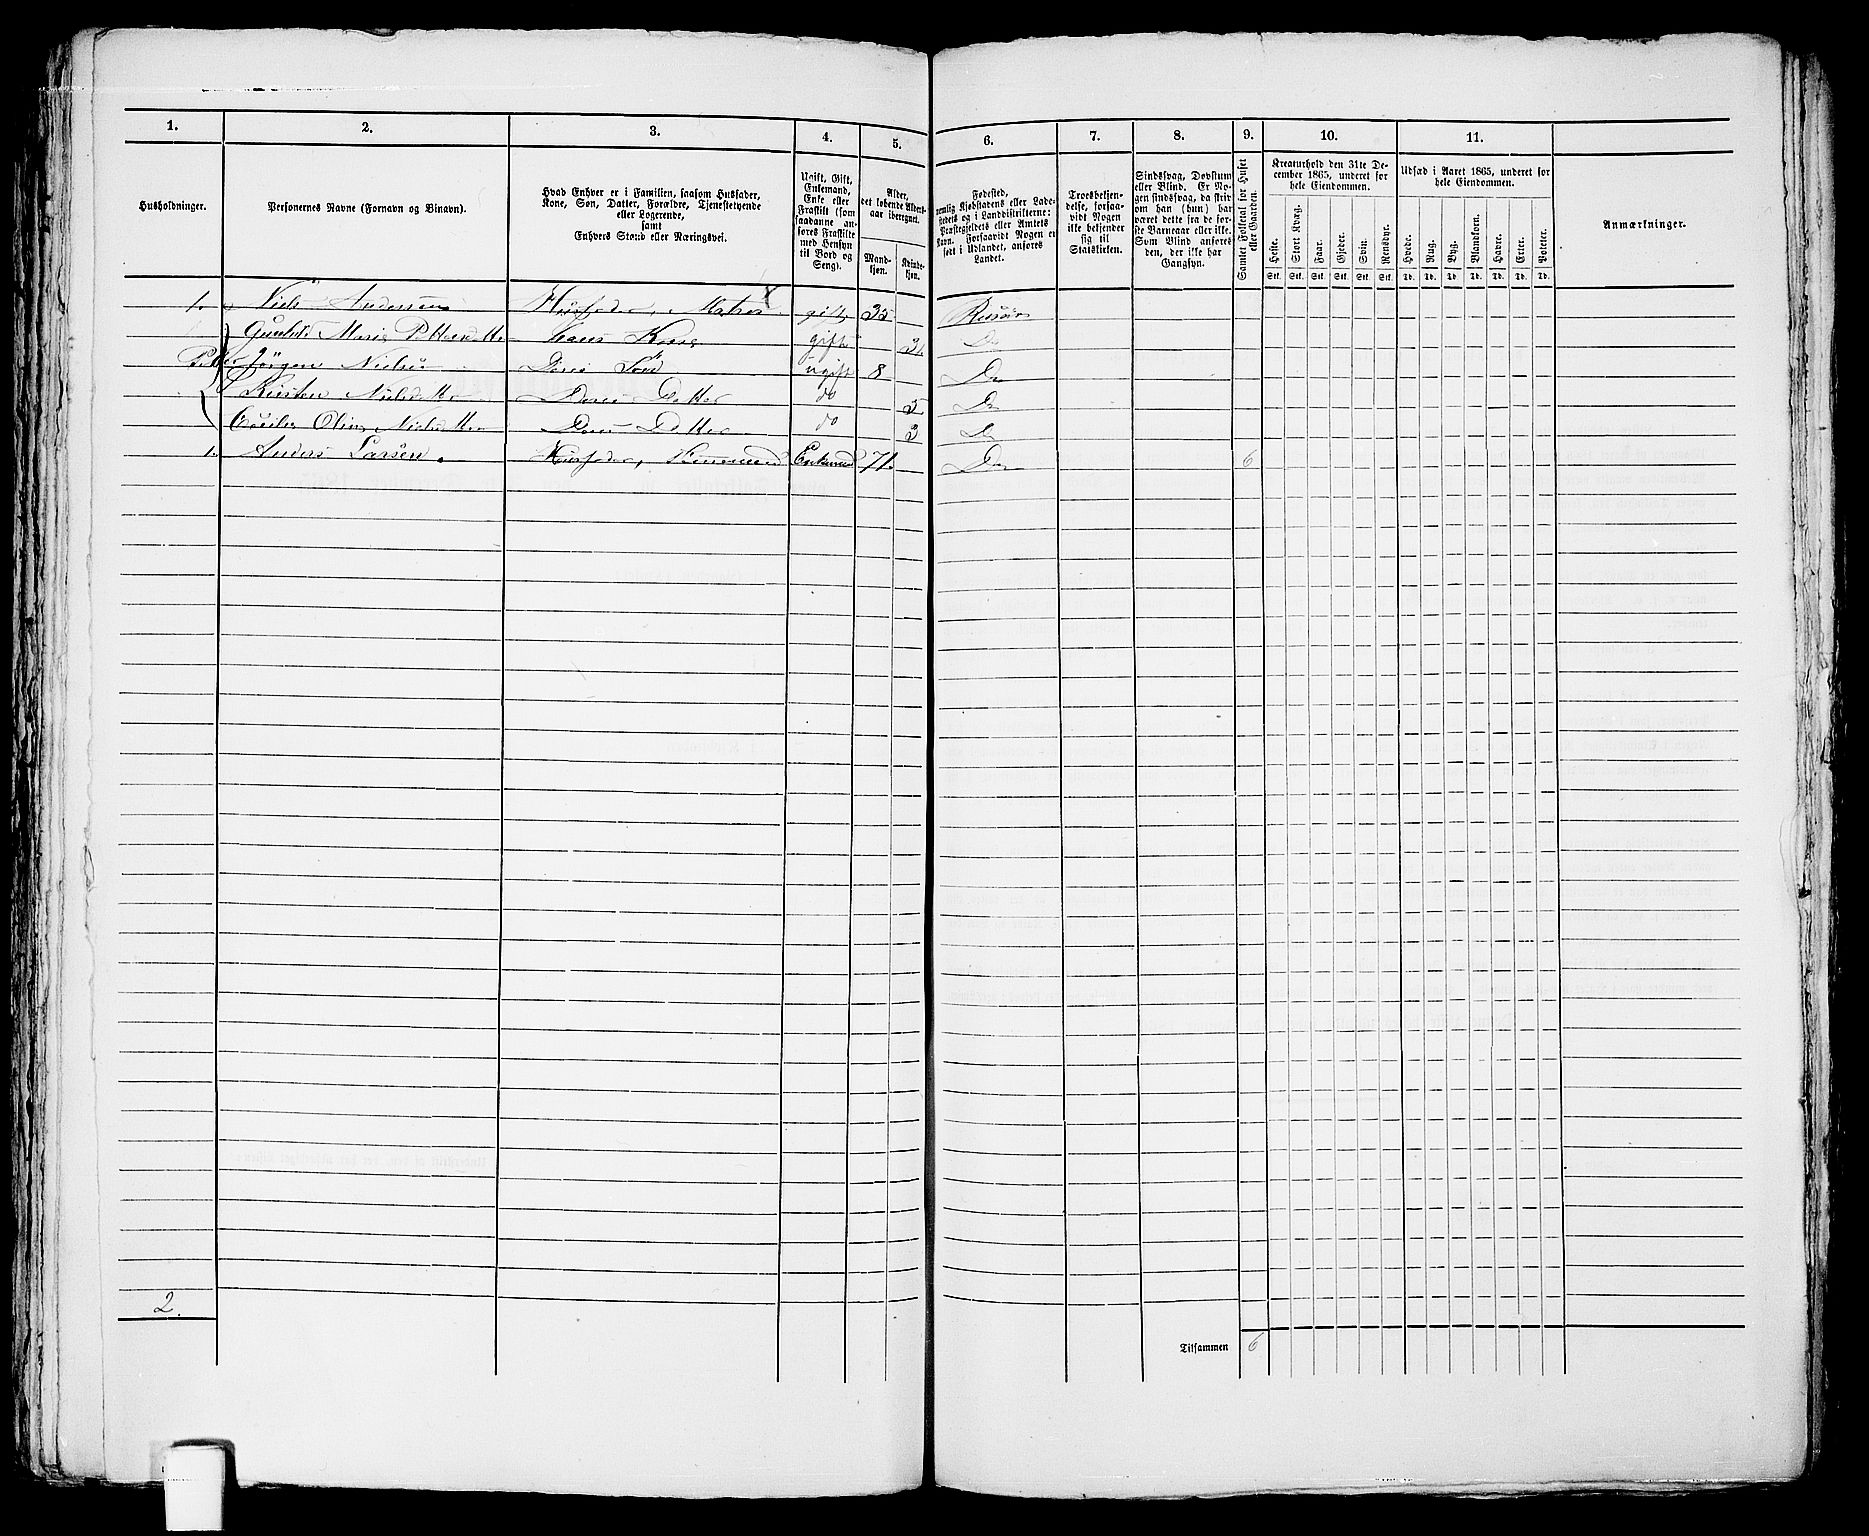 1. 2. 3. 4. 5. 6. 7. 8. 9. 10. 11.
Husholdninger.
Personernes Navne (Fornavn og Binavn).
Hvad Enhver er i Familien, saasom Husfader,
Kone, Søn, Datter, Forældre, Tjenestetyende
eller Logerende,
samt
Enhvers Stand eller Næringsvei.
Ugift, Gift,
Enkemand,
Enke eller
Fraskilt (som
saadanne an-
føres Fraskilte
med Hensyn
til Bord og
Seng).
Alder,
det løbende Alders-
aar iberegnet.
Mand-
kjøn.
Kvinde-
kjøn.
Fødested,
nemlig Kjøbstadens eller Lade-
stedets og i Landdistrikterne:
Præstegjeldets eller Amtets
Navn. Forsaavidt Nogen er
født i Udlandet, anføres
Landet.
Troesbekjen-
delse, forsaa-
vidt Nogen
ikke bekjender
sig til
Statskirken.
Sindssvag, Døvstum
eller Blind. Er No-
gen sindssvag, da skriv
om han (hun) har
været dette fra de før-
ste Barneaar eller ikke.
Som Blind anføres
den, der ikke har
Gangsyn.
Samlet Folketal for Huset
eller Gaarden.
Kreaturhold den 31te De-
cember 1865, underet for
hele Eiendommen.
Heste. Stort Kvæg. Faar. Gjeder. Svin. Rensdyr.
Stk. Stk. Stk. Stk. Stk. Stk.
Udsæd i Aaret 1865, underet for
hele Eiendommen.
Hvede. Rug. Byg. Blandkorn. Havre. Erter. Poteter.
Td. Td. Td. Td. Td. Td. Td.
Anmærkninger.
1. Niels Andersen Husfader, Matros gift 35 Risør
Maria gift Do
Jørgen Nielsen Deres Søn ugift 8 Do
Kirsten Nielsdatter Deres Datter do 5 Do
Oline Nielsdatter Deres Datter do 3 Do
1. Anders Larsen. Husfader, Enkemand 71 Do 6
2.
Tilsammen 6